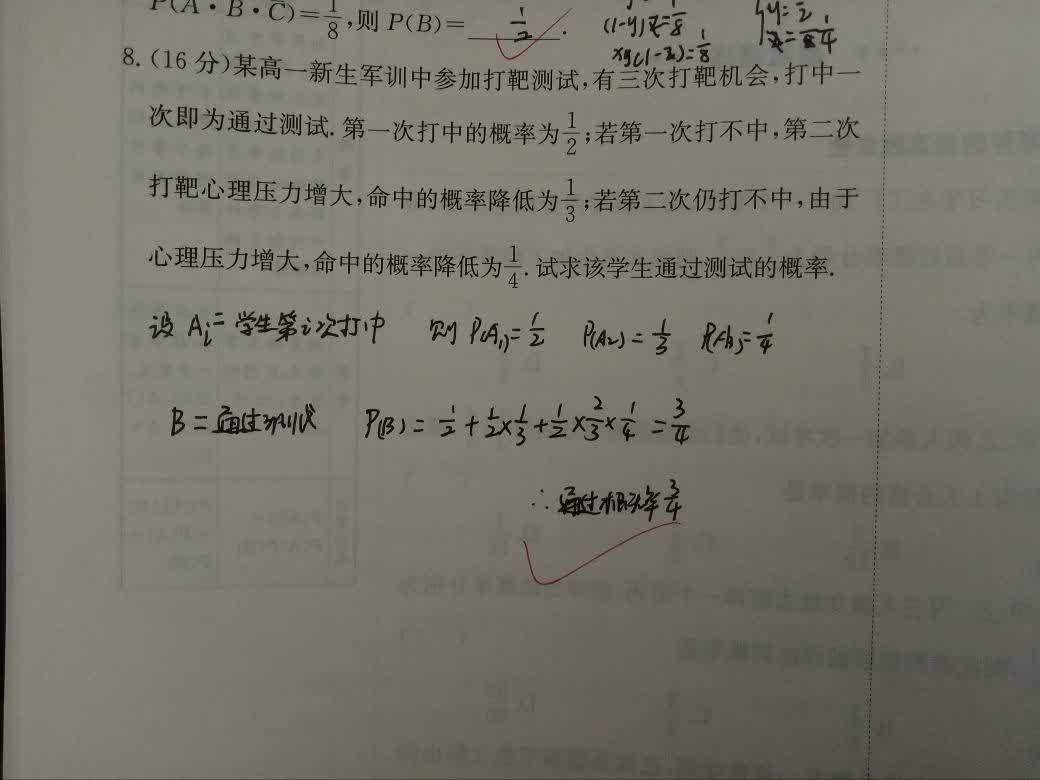 P(A·B·C̅)=1/8,则 P(B)= 1/2 .
(1-y)z=1/8
xy(1-z)=1/8
8.(16 分)某高一新生军训中参加打靶测试,有三次打靶机会,打中一
次即为通过测试.第一次打中的概率为1/2;若第一次打不中,第二次
打靶心理压力增大,命中的概率降低为1/3;若第二次仍打不中,由于
心理压力增大,命中的概率降低为1/4.试求该学生通过测试的概率.
设 Ai=学生第i次打中 则 P(A1)=1/2 P(A2)=1/3 P(A3)=1/4
B=通过测试 P(B)=1/2+1/2×1/3+1/2×2/3×1/4=3/4
∴通过概率3/4